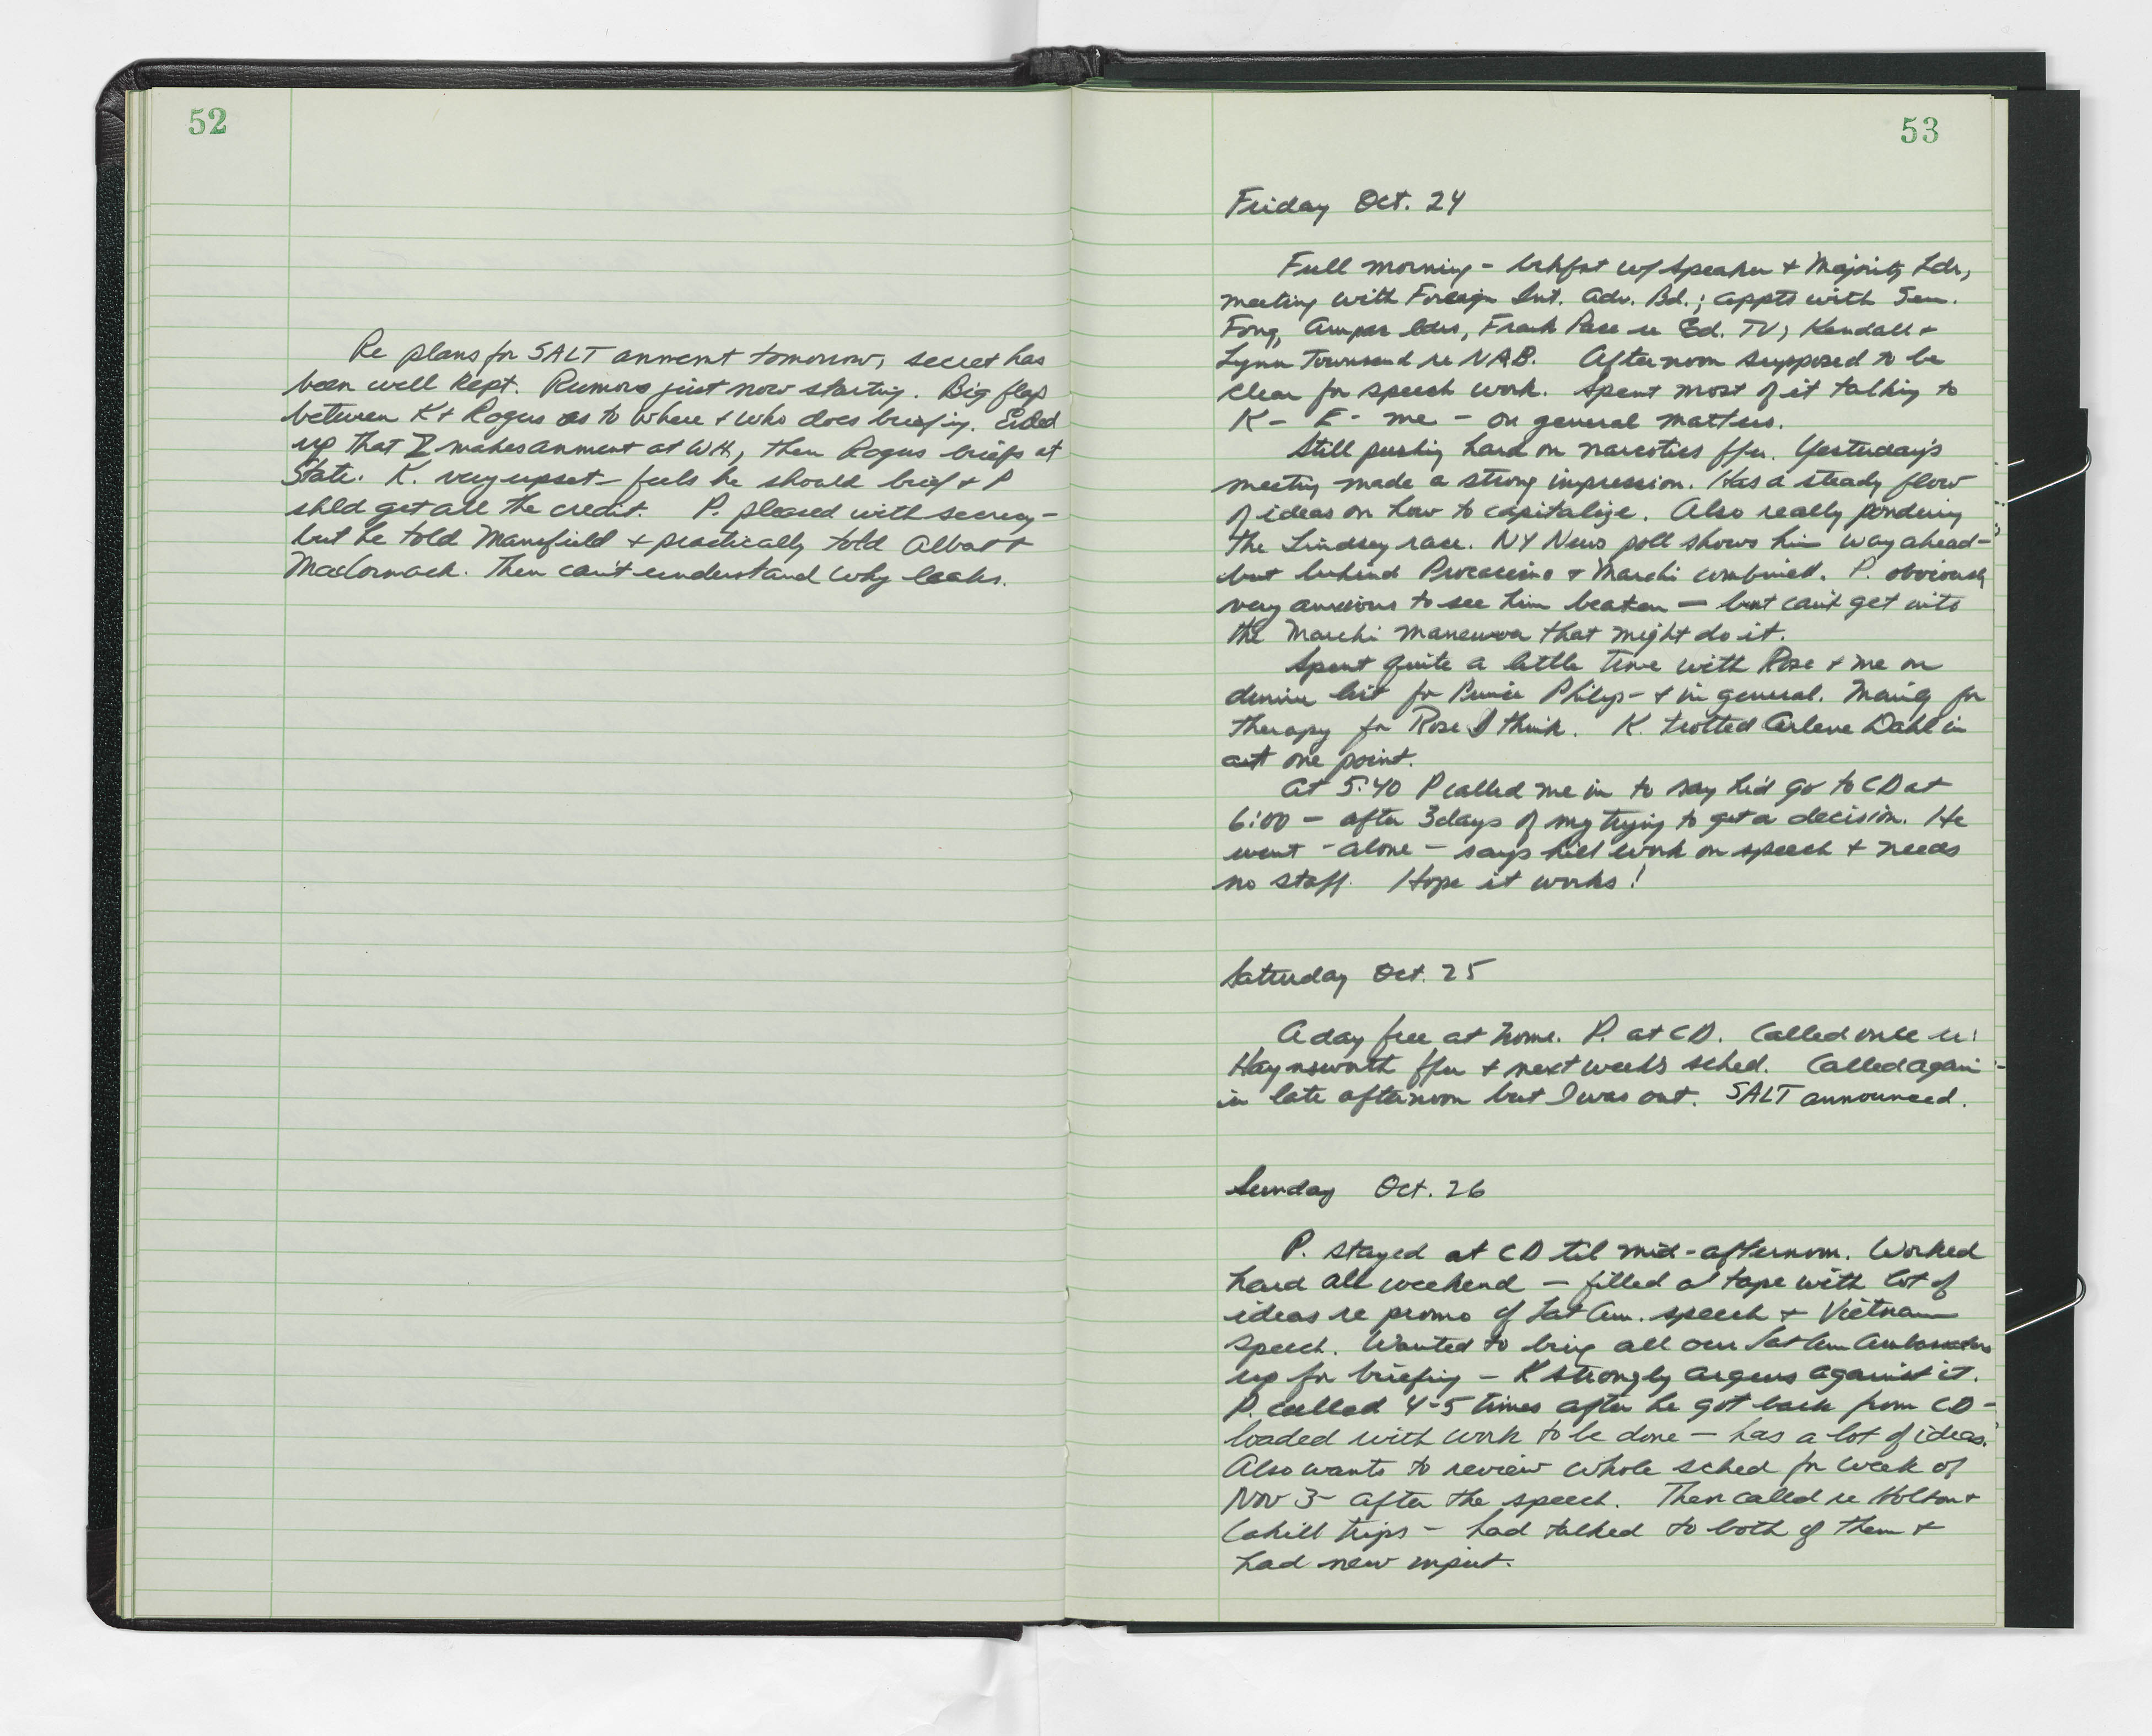 52
Re plans for SALT anment tomorrow, secret has
been well kept. Rumors just now starting. Big flap
between K + Rogers as to where + who does briefing. Ended
up that Z makes anment at WH, then Rogers briefs at
State. K. very upset - feels he should brief + P
shld get all the credit. P. pleased with secrecy -
but he told Mansfield + practically told Albert +
McCormack. Then can't understand why leaks.
53
Friday Oct. 24
Full morning - brkfst w/ Speaker + Majority Ldr,
meeting with Foreign Int. Adv. Bd.; appts with Sen.
Fong, ldrs, Frank Pace re Ed. TV, Kendall +
Lynn Townsend re NAB. Afternoon supposed to be
clear for speech work. Spent most of it talking to
K - E - me - on general matters.
Still pushing hard on narcotics ffu. Yesterday's
meeting made a strong impression. Has a steady flow
of ideas on how to capitalize. Also really pondering
the Lindsay race. NY News poll shows him way ahead -
but behind Procaccino + Marchi combined. P. obviously
very anxious to see him beaten — but can't get into
the Marchi maneuver that might do it.
Spent quite a little time with Rose + me on
dinner list for Prince Philip - + in general. Mainly for
therapy for Rose I think. K. trotted Arlene Dahl in
at one point.
At 5:40 P called me in to say he'd go to CD at
6:00 - after 3 days of my trying to get a decision. He
went - alone - says he'll work on speech + needs
no staff. Hope it works!
Saturday Oct. 25
A day free at home. P. at CD. Called once re:
Haynsworth ffu + next week's sched. Called again
in late afternoon but I was out. SALT announced.
Sunday Oct. 26
P. stayed at CD til mid-afternoon. Worked
hard all weekend — filled a tape with lot of
ideas re promo of Lat Am. speech + Vietnam
speech. Wanted to bring all our Lat Am Ambassadors
up for briefing - K strongly argues against it.
P. called 4-5 times after he got back from CD -
loaded with work to be done — has a lot of ideas.
Also wants to review whole sched for week of
Nov 3 - after the speech. Then called re Holton +
Cahill trips - had talked to both of them +
had new input.